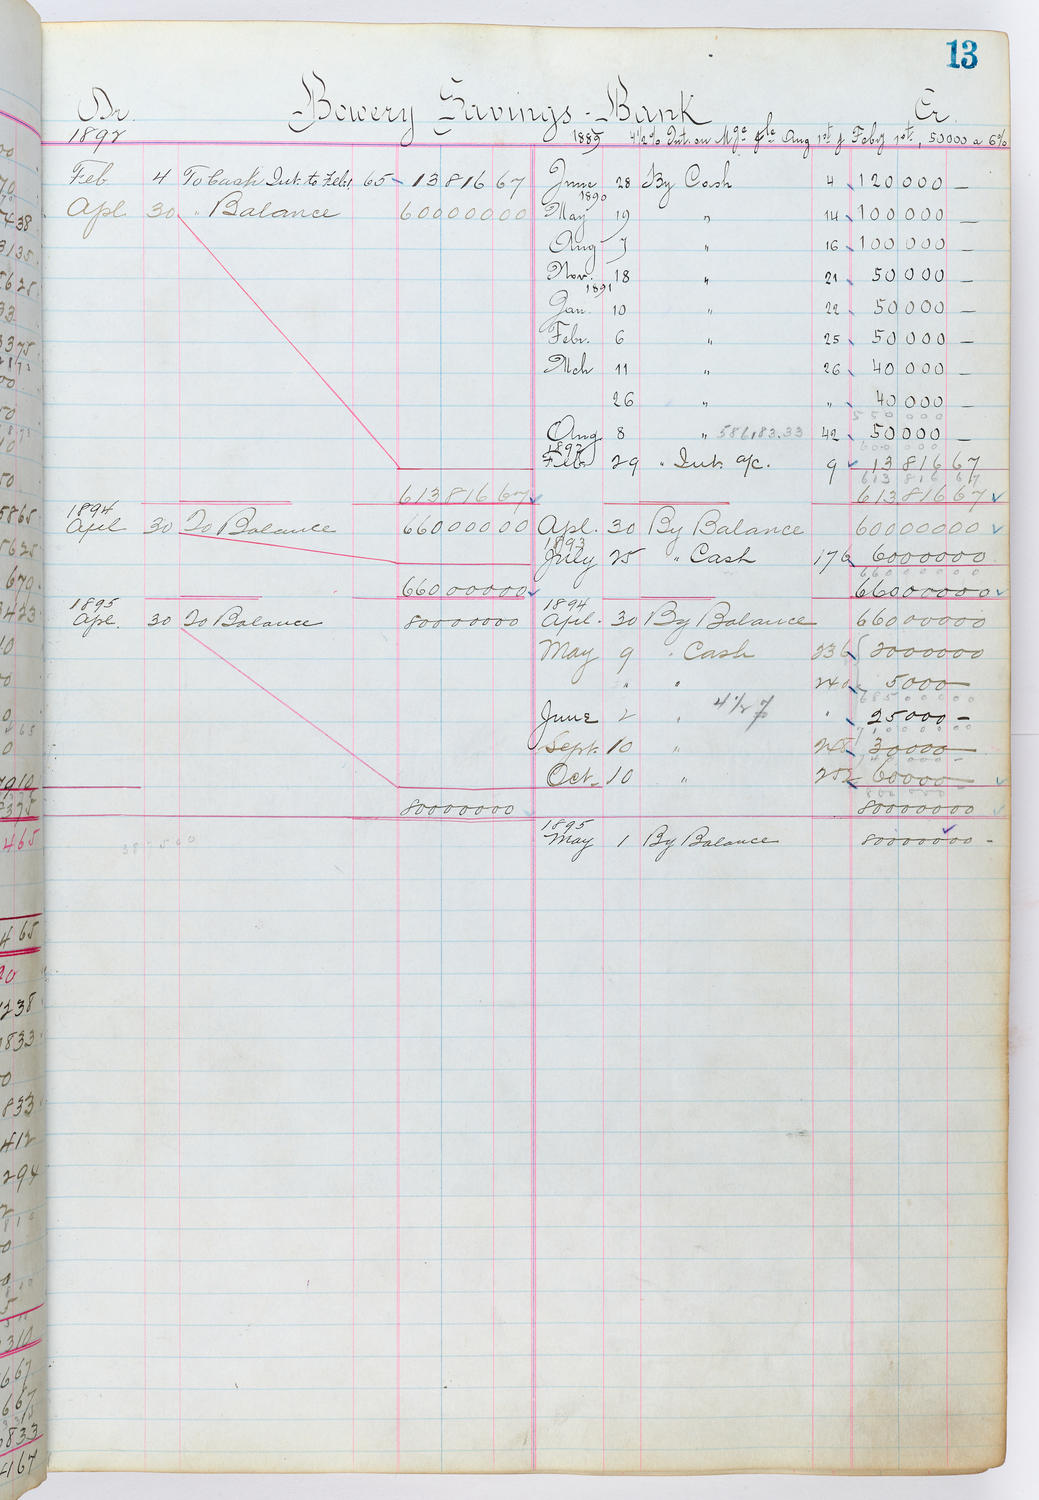 13
Dr. Bowery Savings Bank Cr.
1892
1889 4½% Int. on Mge ple Aug 1st & Feby 1st, 50000 a 5%
Feb 4 To Cash Int. to Feb 1 65 13816 67
Apl 30 " Balance 600000 00
June 28 By Cash 4 120 000 —
1890
May 19 " 14 100 000 —
Aug 7 " 16 100 000 —
Nov. 18 " 21 50 000 —
1891
Jan. 10 " 22 50 000 —
Febr. 6 " 25 50 000 —
Mch 11 " 26 40 000 —
26 " " 40 000 —
550000
Aug 8 " 586,183.33 42 50 000 —
600 000
1892
Feb. 29 " Int. a/c. 9 13816 67
613 816 67
613816 67 613816 67
1894
April 30 To Balance 660000 00
Apl. 30 By Balance 600000 00
1893
July 25 " Cash 176 60000 00
660000 00
660000 00 660000 00
1895
Apl. 30 To Balance 800000 00
1894
Apl. 30 By Balance 660000 00
May 9 " Cash 236 20000 00
" " 240 5000 —
685 000 00
June 2 " 4½% " 25000 —
Sept. 10 " 248 30000 —
740 000 —
Oct. 10 " 252 60000 —
800 000 —
800000 00 800000 00
1895
May 1 By Balance 800000 00 -
38 500